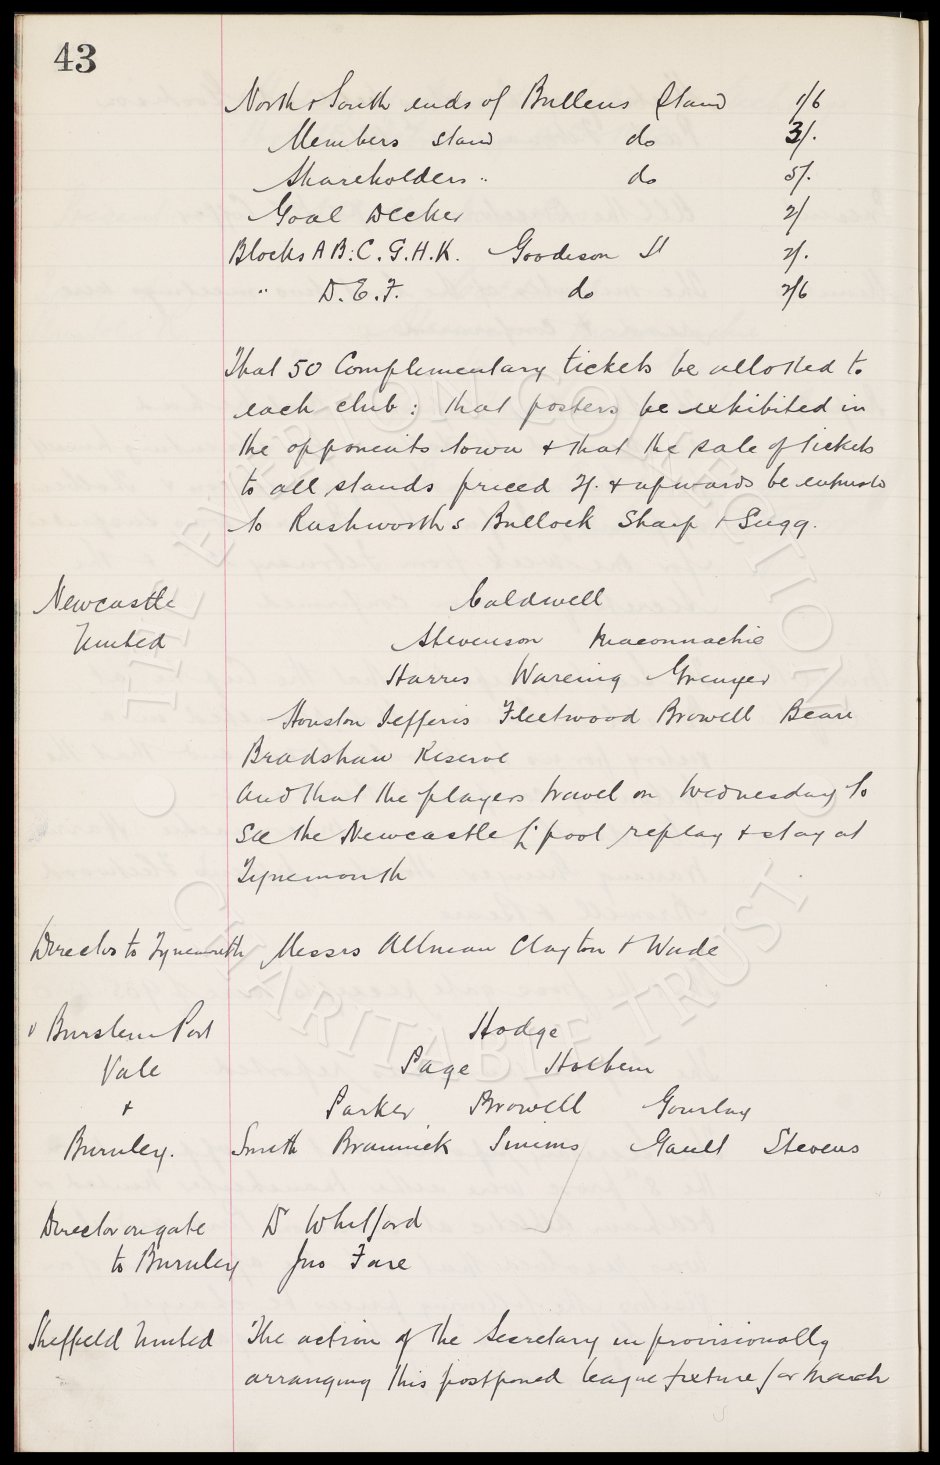 43
North & South ends of Bullens Stand 1/6
Members stand do 3/-
Shareholders " do 5/-
Goal Decker 2/
Blocks A B. C. G. H. K. Goodison St 2/-
" D. E. F. do 2/6
That 50 Complementary tickets be allotted to
each club: that posters be exhibited in
the opponents town & that the sale of tickets
to all stands priced 2/- & upwards be
to Rushworths Bullock Sharp & Sugg.
Newcastle United
Caldwell
Stevenson Maconnachie
Harris Wareing Grenyer
Houston Jefferis Fleetwood Browell Beare
Bradshaw Reserve
And that the players travel on Wednesday to
see the Newcastle L'pool replay & stay at
Tynemouth
Director to Tynemouth Messrs Allman Clayton & Wade
v Burslem Port Vale & Burnley.
Hodge
Page Holbem
Parker Browell Gourlay
Smith Brannick Simms Gault Stevens
Director on gate D Whitford
to Burnley Jno Fare
Sheffield United The action of the Secretary in provisionally
arranging this postponed league fixture for March
THE EVERTON COLLECTION
CHARITABLE TRUST